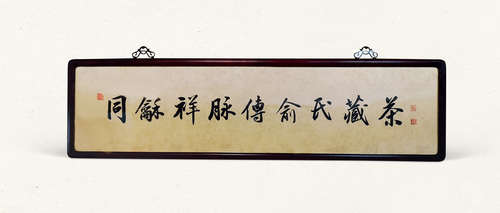 茶藏民俞傳脉祥龢同